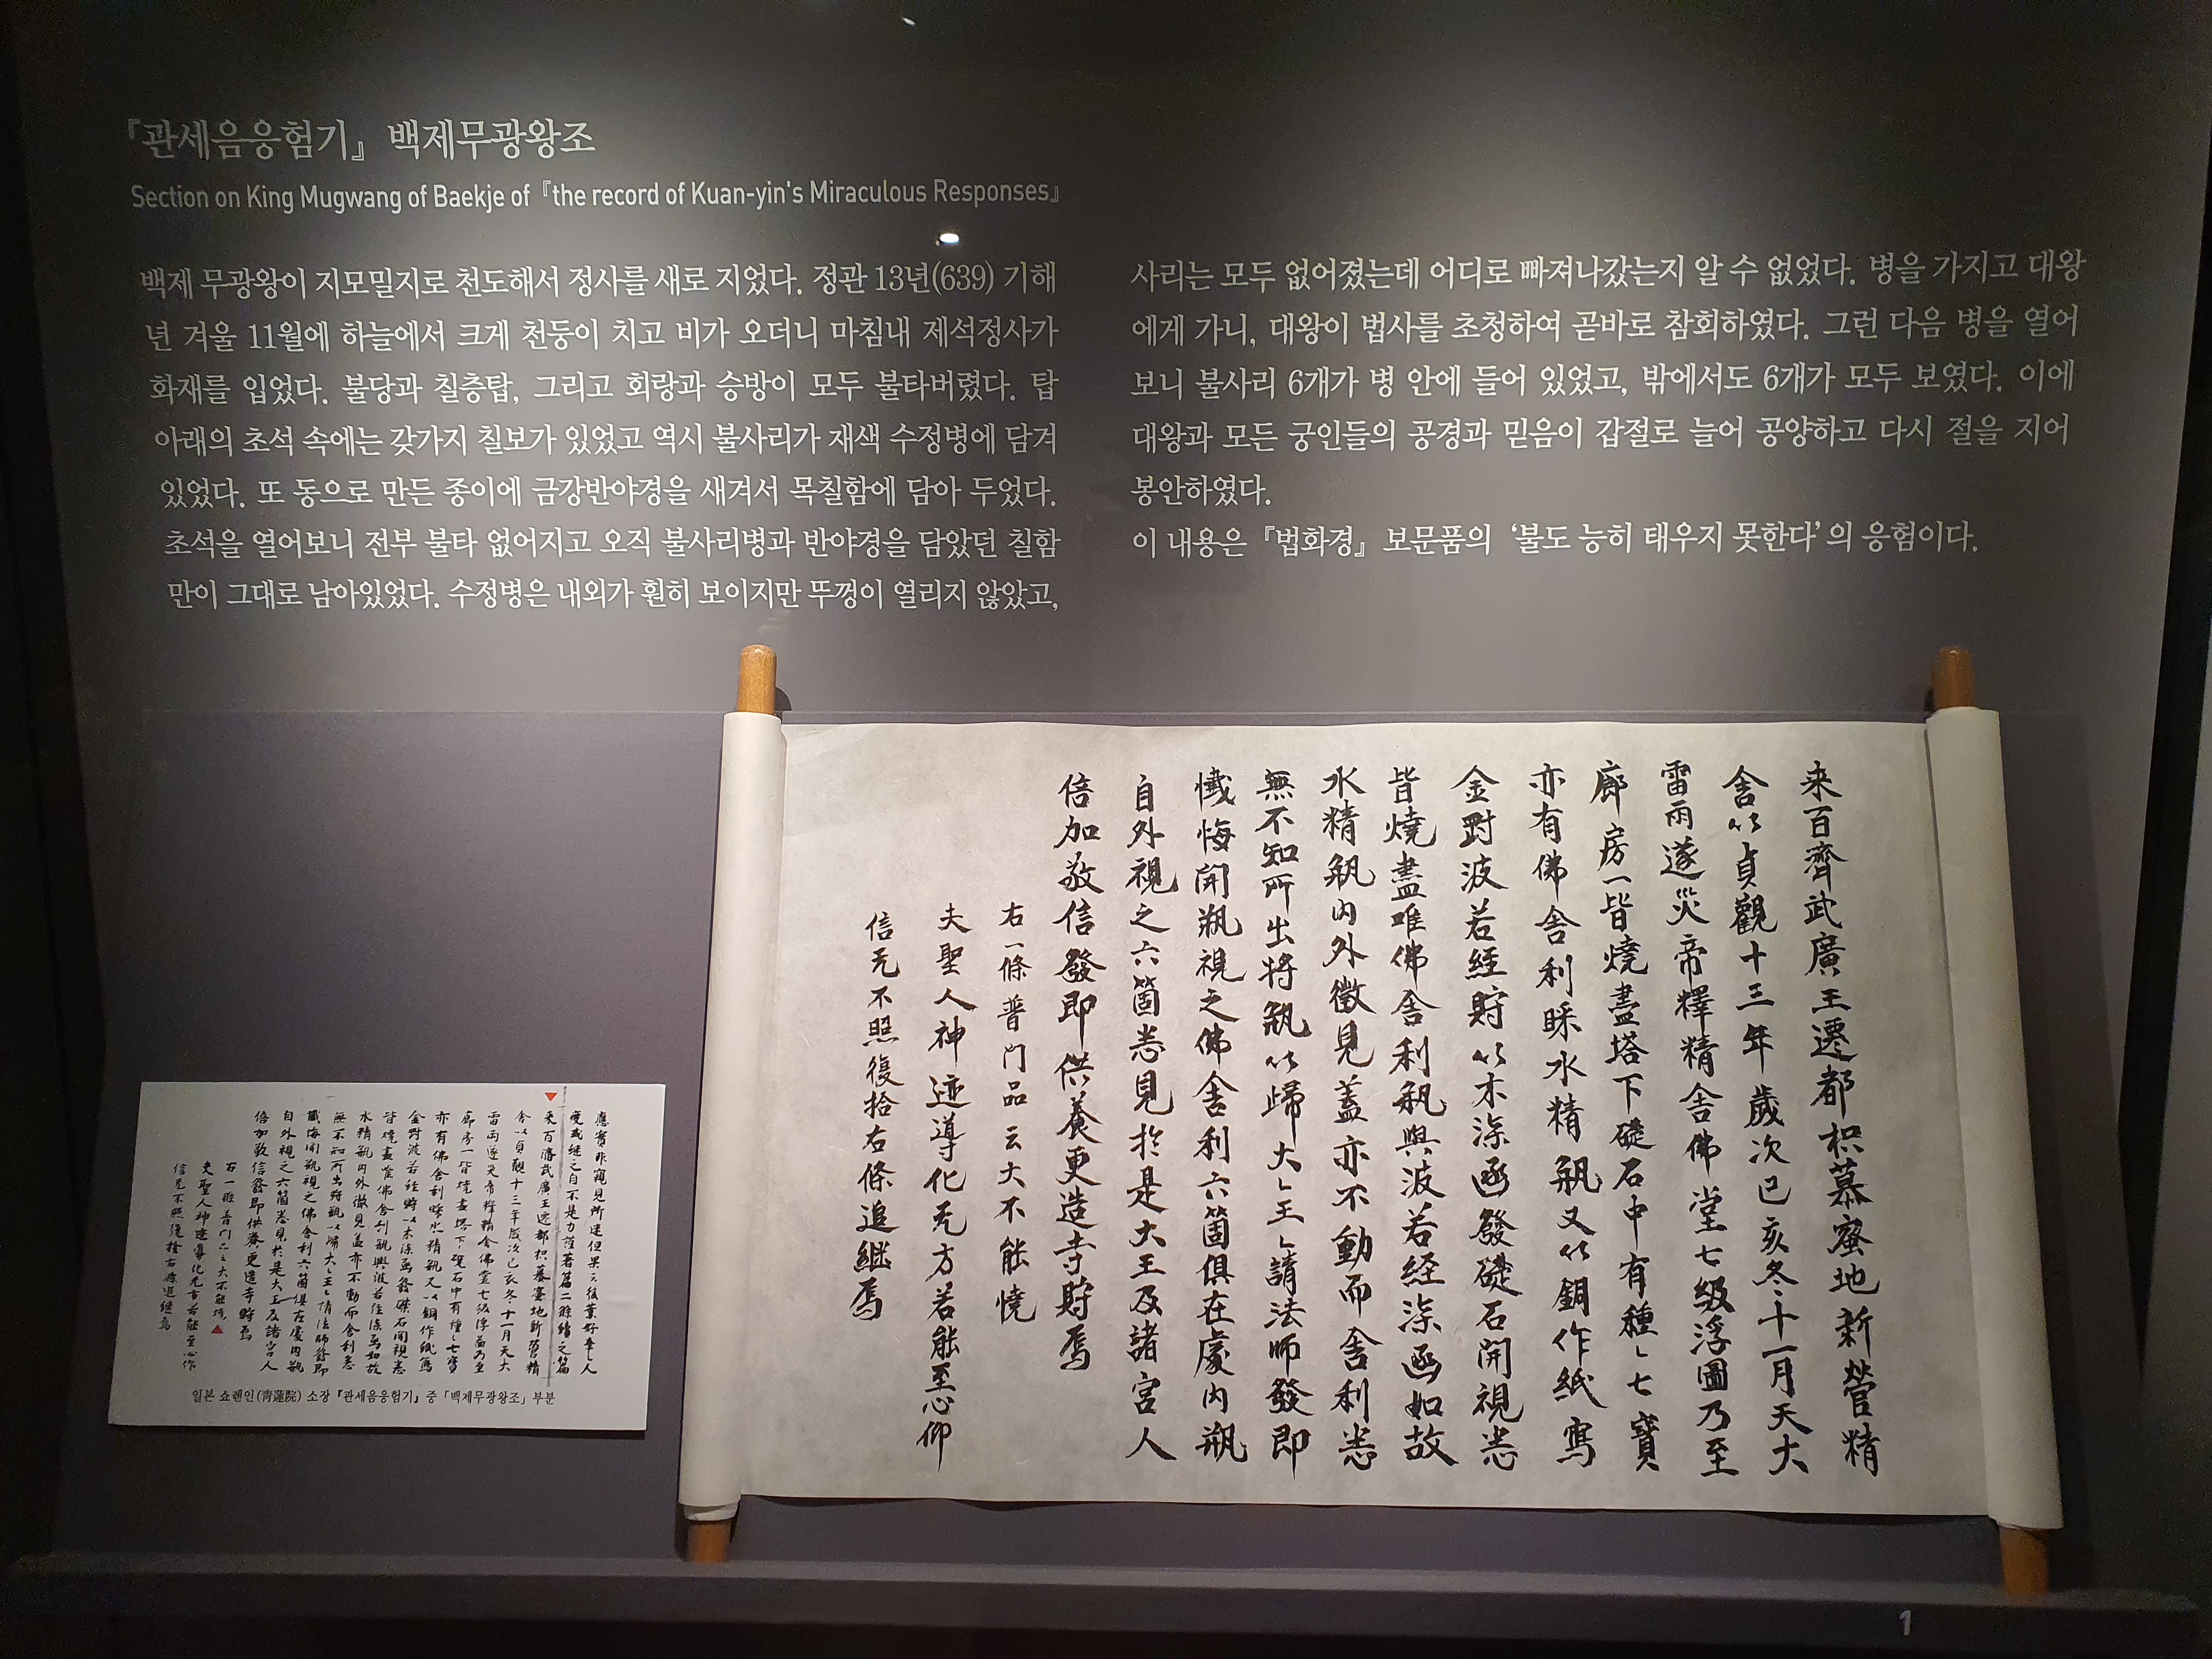 『관세음응험기』 백제무광왕조
Section on King Mugwang of Baekje of 『the record of Kuan-yin's Miraculous Responses』
백제 무광왕이 지모밀지로 천도해서 정사를 새로 지었다. 정관 13년(639) 기해
년 겨울 11월에 하늘에서 크게 천둥이 치고 비가 오더니 마침내 제석정사가
화재를 입었다. 불당과 칠층탑, 그리고 회랑과 승방이 모두 불타버렸다. 탑
아래의 초석 속에는 갖가지 칠보가 있었고 역시 불사리가 재색 수정병에 담겨
있었다. 또 동으로 만든 종이에 금강반야경을 새겨서 목칠함에 담아 두었다.
초석을 열어보니 전부 불타 없어지고 오직 불사리병과 반야경을 담았던 칠함
만이 그대로 남아있었다. 수정병은 내외가 훤히 보이지만 뚜껑이 열리지 않았고,
사리는 모두 없어졌는데 어디로 빠져나갔는지 알 수 없었다. 병을 가지고 대왕
에게 가니, 대왕이 법사를 초청하여 곧바로 참회하였다. 그런 다음 병을 열어
보니 불사리 6개가 병 안에 들어 있었고, 밖에서도 6개가 모두 보였다. 이에
대왕과 모든 궁인들의 공경과 믿음이 갑절로 늘어 공양하고 다시 절을 지어
봉안하였다.
이 내용은 『법화경』 보문품의 ‘불도 능히 태우지 못한다’의 응험이다.
来百濟武廣王遷都枳慕蜜地新營精
舍以貞觀十三年歲次己亥冬十一月天大
雷雨遂災帝釋精舍佛堂七級浮圖乃至
廊房一皆燒盡塔下礎石中有種〻七寶
亦有佛舍利睬水精瓶又以銅作紙寫
金對波若経貯以木漆函發礎石開視悉
皆燒盡唯佛舍利瓶與波若経漆函如故
水精瓶內外徹見蓋亦不動而舍利悉
無不知所出将瓶以歸大〻王〻請法師發即
懺悔開瓶視之佛舍利六箇俱在處內瓶
自外視之六箇悉見於是大王及諸宮人
倍加敬信發即供養更造寺貯焉
右一條普門品云火不能燒
夫聖人神迹導化无方若能至心仰
信无不照復拾右條追継焉
来百濟武廣王遷都枳慕蜜地新營精
舍以貞觀十三年歲次己亥冬十一月天大
雷雨遂災帝釋精舍佛堂七級浮圖乃至
廊房一皆燒盡塔下礎石中有種〻七寶
亦有佛舍利睬水精瓶又以銅作紙寫
金對波若経貯以木漆函發礎石開視悉
皆燒盡唯佛舍利瓶與波若経漆函如故
水精瓶內外徹見蓋亦不動而舍利悉
無不知所出将瓶以歸大〻王〻請法師發即
懺悔開瓶視之佛舍利六箇俱在處內瓶
自外視之六箇悉見於是大王及諸宮人
倍加敬信發即供養更造寺貯焉
일본 쇼렌인(靑蓮院) 소장 『관세음응험기』 중 「백제무광왕조」 부분
1